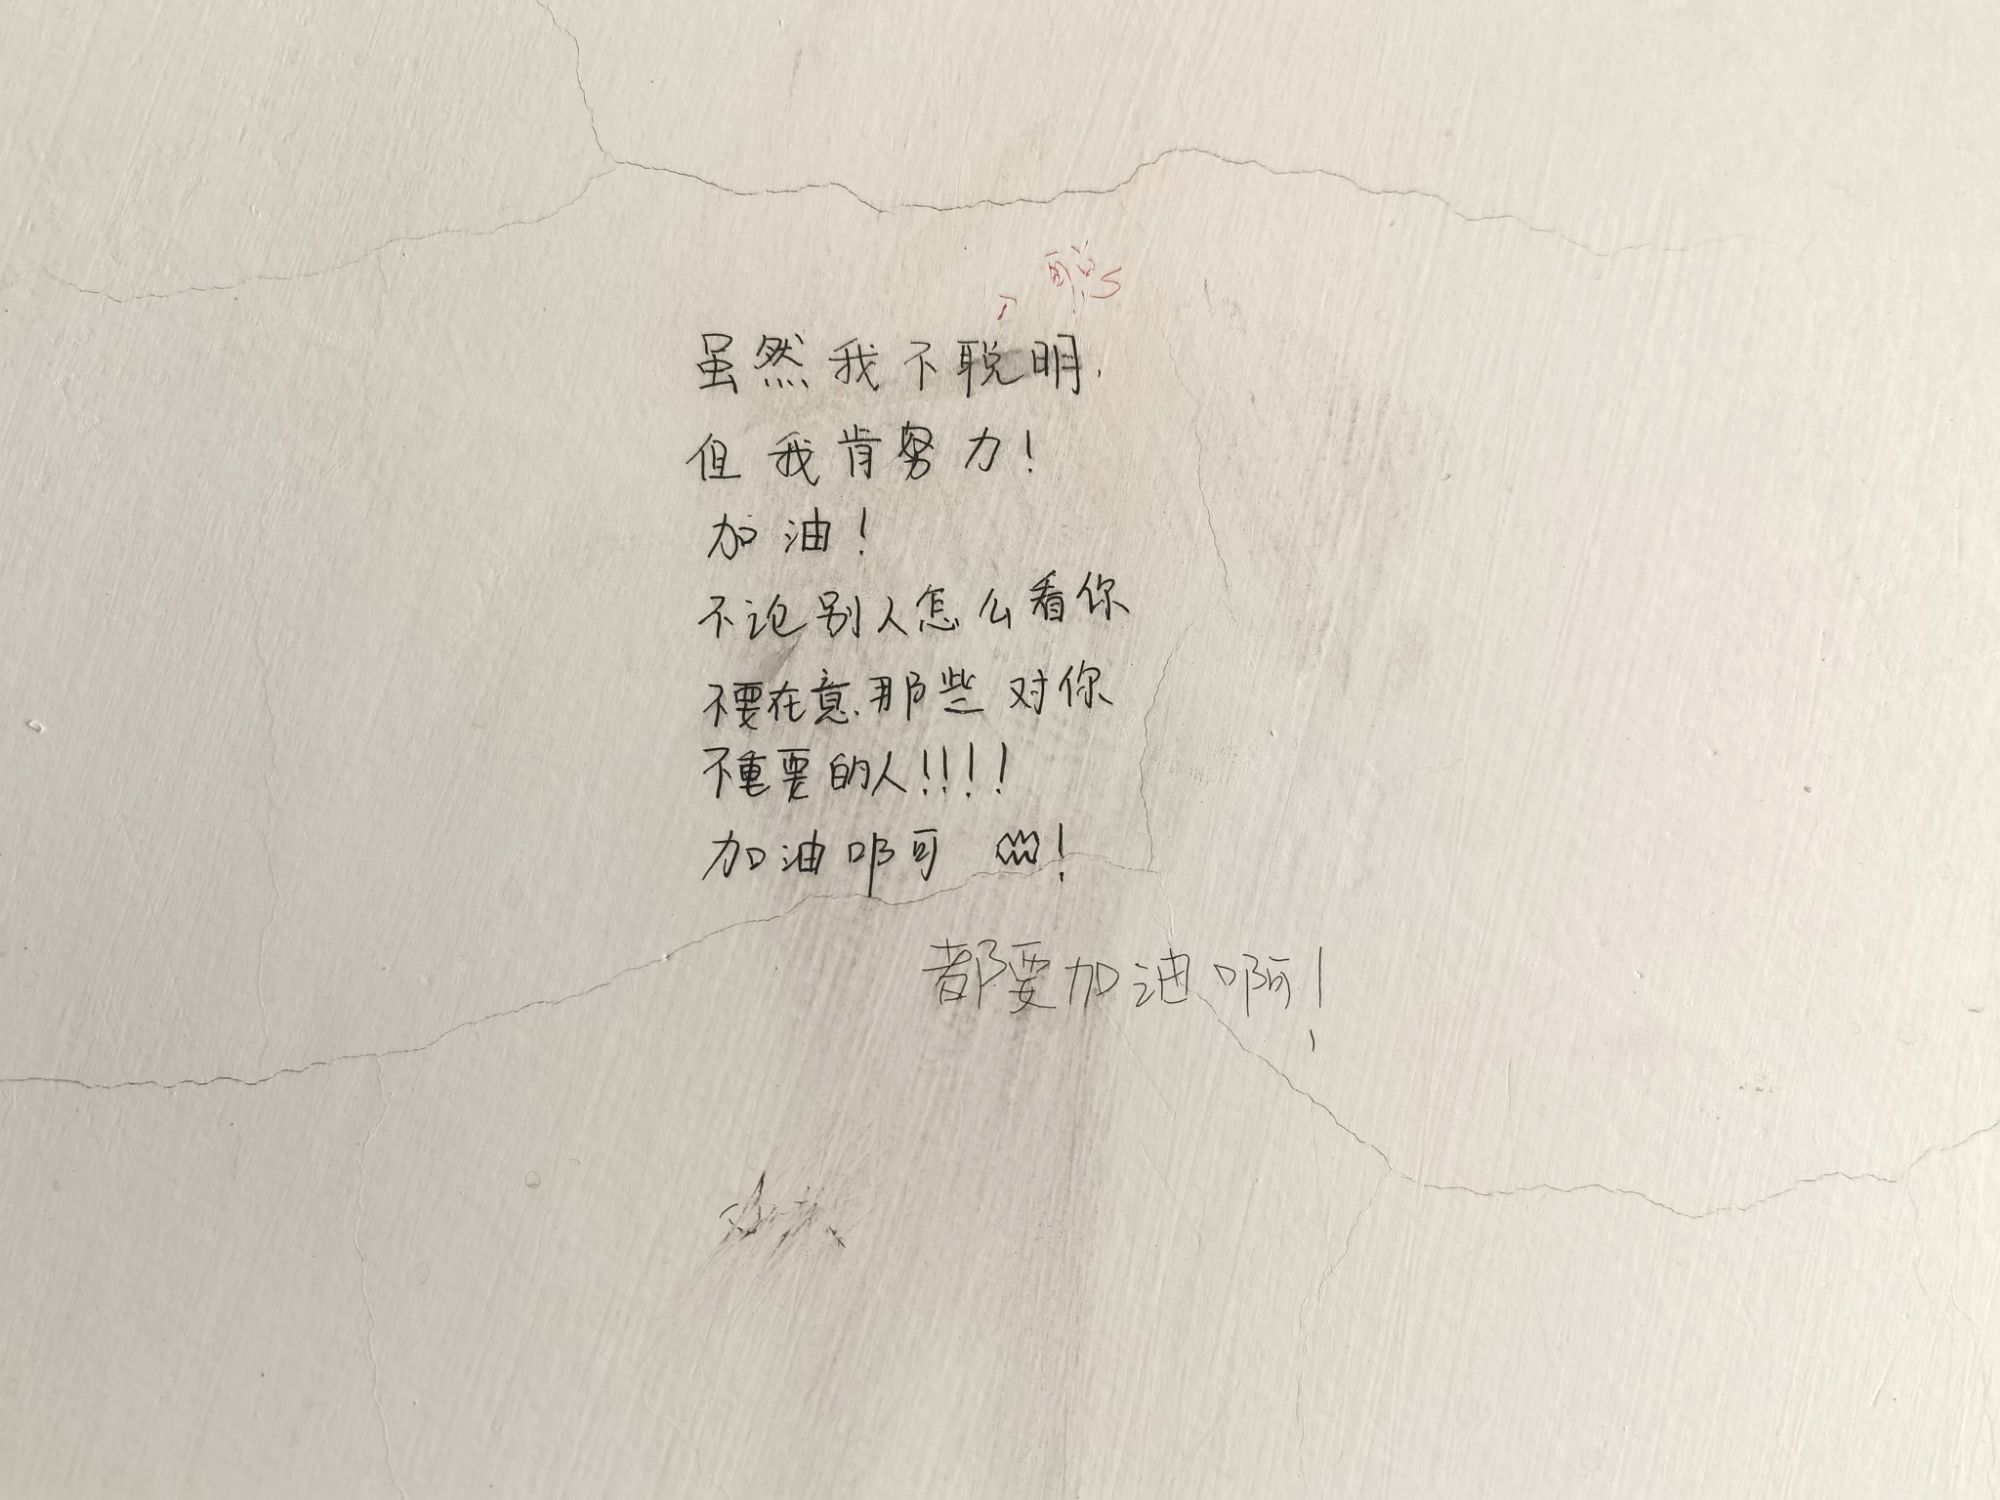 聪
虽然我不聪明.
但我肯努力!
加油!
不论别人怎么看你
不要在意.那些对你
不重要的人!!!!
加油啊 !
都要加油啊!